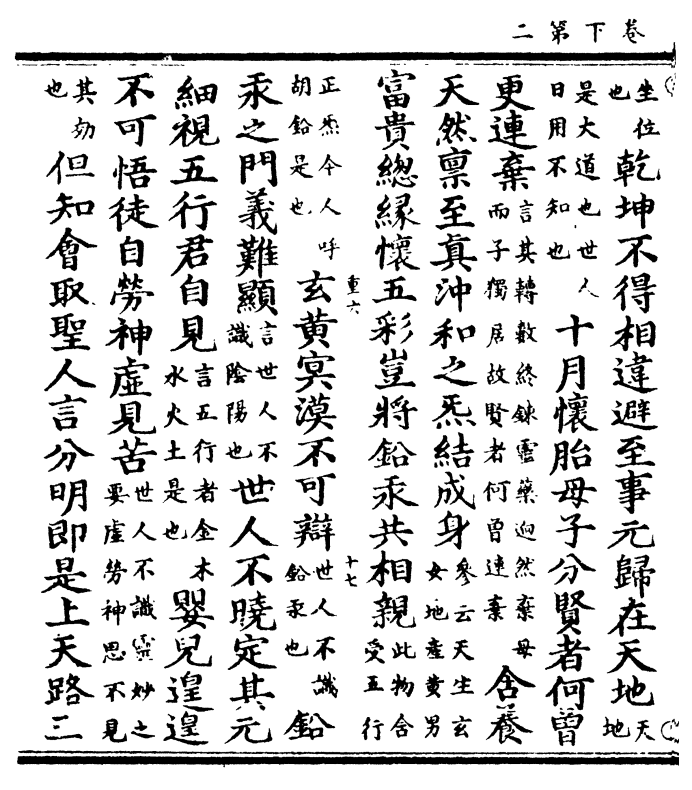 卷下第二
坐位也乾坤不得相違避至事元歸在天地天地
是大道也世人日用不知也十月懷胎母子分賢者何曾
更連棄言其轉數終鍊靈藥迥然棄母而子獨居故賢者何曾連棄含養
天然禀至真沖和之炁結成身參云天生玄女地產黃男
富貴總緣懷五彩豈將鉛汞共相親此物含受五行
重六 十七
正炁今人呼胡鉛是也玄黃冥漠不可辯世人不識鉛汞也鉛
汞之門義難顯言世人不識陰陽也世人不曉定其元
細視五行君自見言五行者金木水火土是也嬰兒遑遑
不可悟徒自勞神虛見苦世人不識靈妙之要虛勞神思不見
其功也但知會取聖人言分明即是上天路三